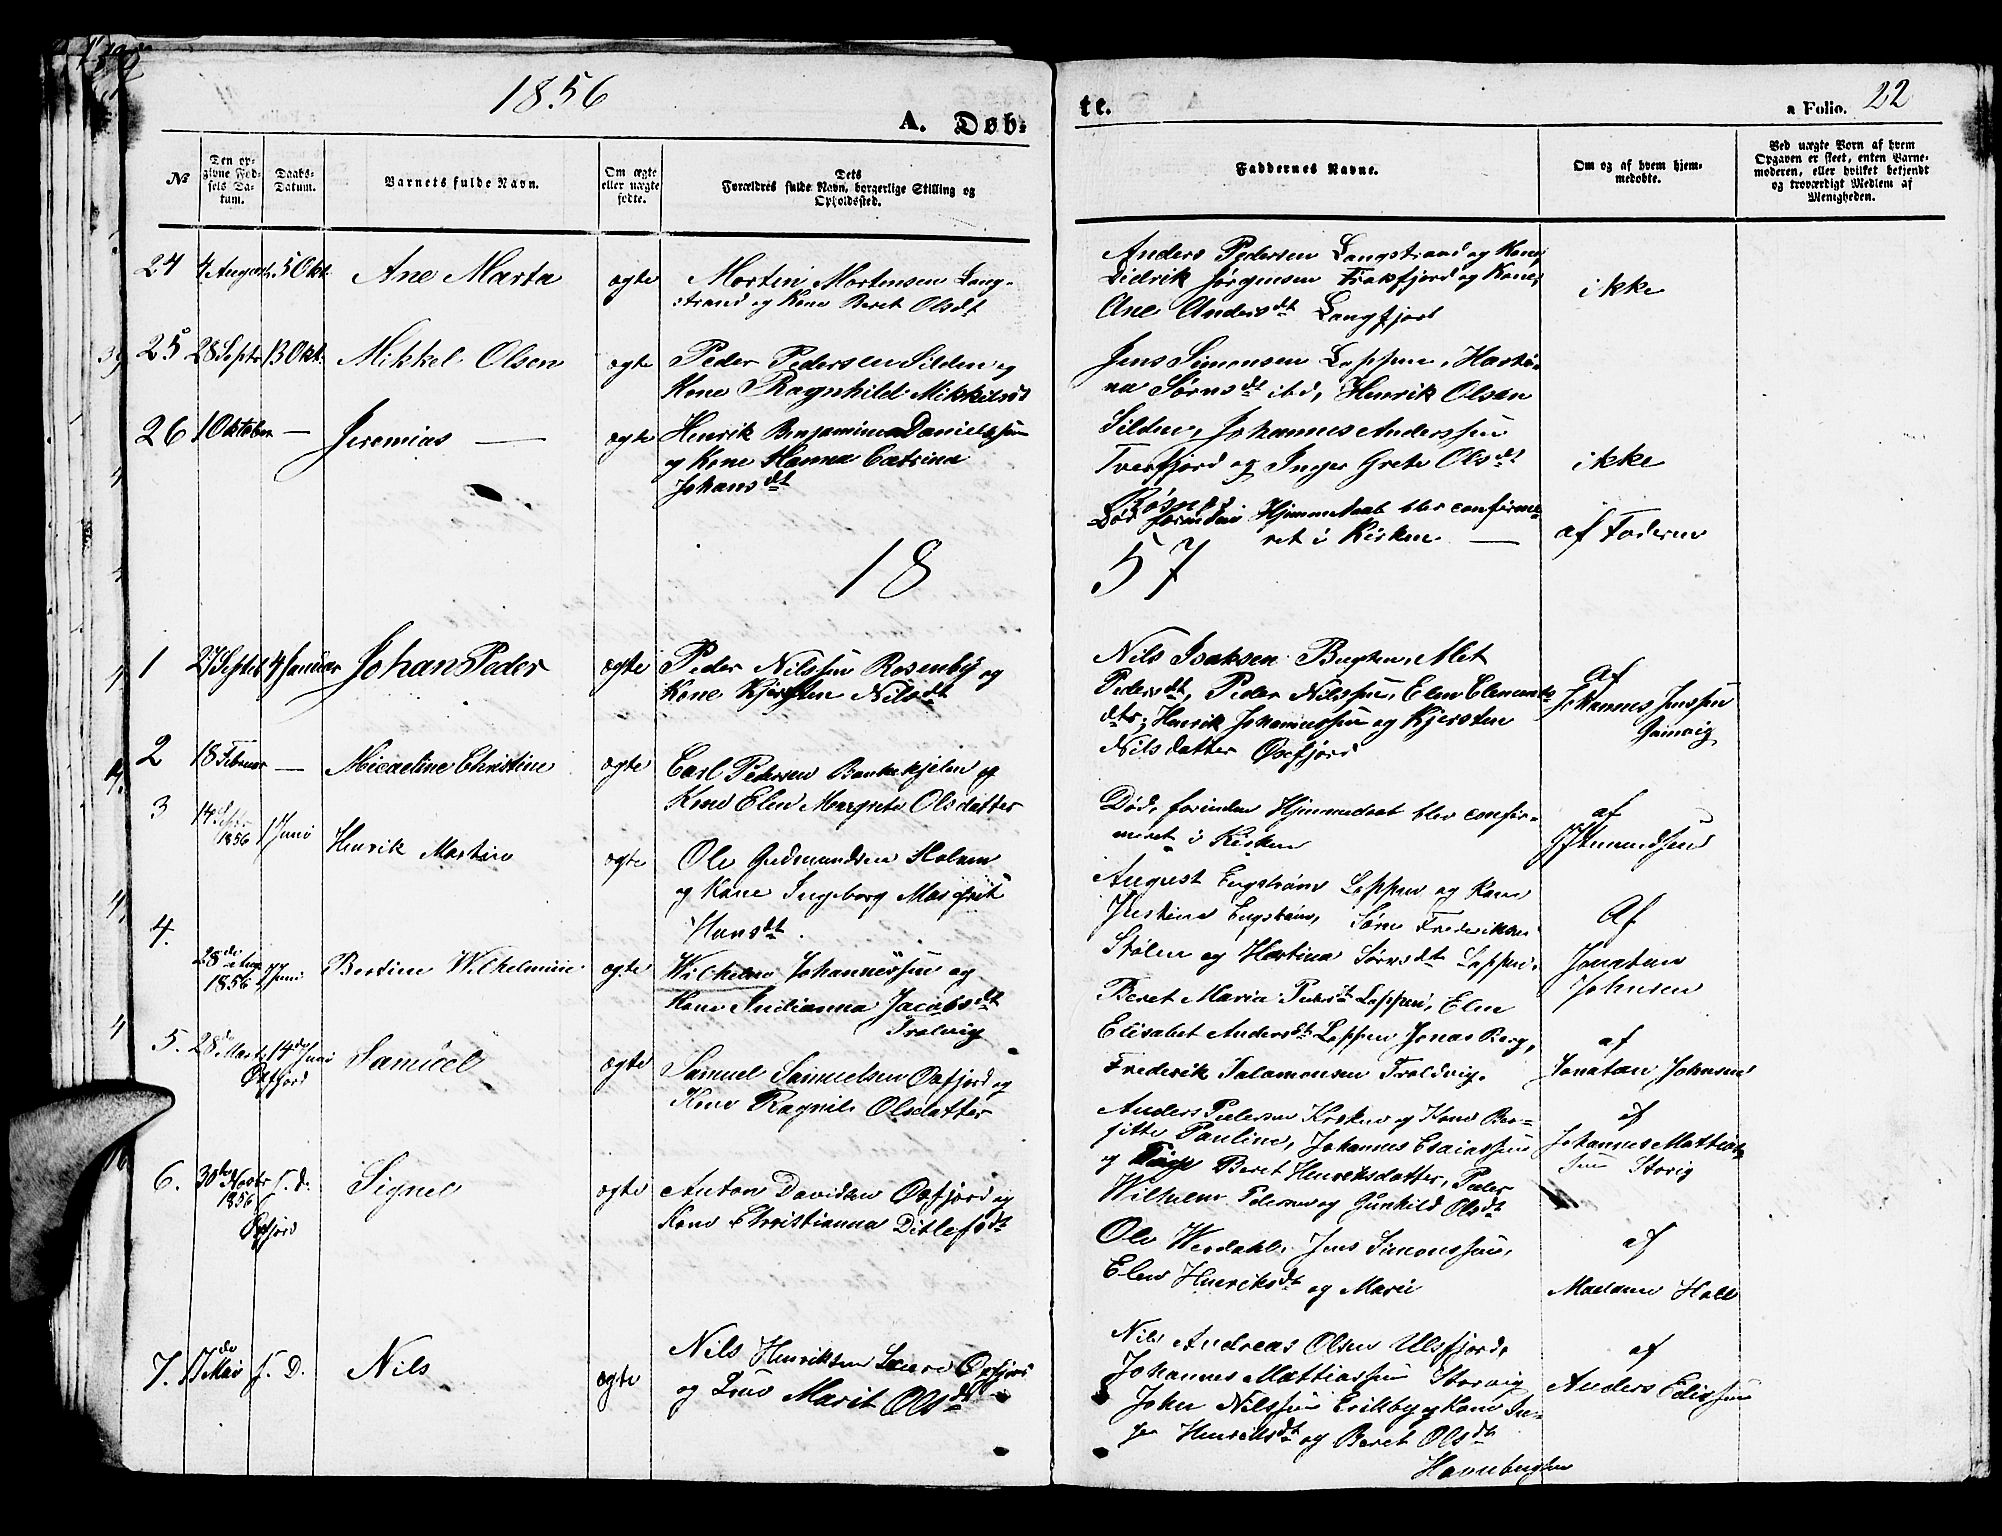 1856
A. Døb-
te.
a Folio. 22
No
Den op-
givne Fød-
sels Da-
tum.
Daabs-
Datum.
Barnets fulde Navn.
Om ægte
eller uægte
fødte.
Dets
Forældres fulde Navn, borgerlige Stilling og
Opholdssted.
Faddernes Navne.
Om og af hvem hjem-
medøbte.
Ved uægte Born af hvem
Opgaven er skeet, enten Barne-
moderen, eller hvilket bekjendt
og troværdigt Medlem af
Menigheden.
24 4 August 5 Okt. Ane Marta ægte
Morten Mortensen Lang-
strand og Kone Beret Olsdt
Anders Pedersen Langstrand og Kone,
Didrik Jørgensen og Kone,
Ane Andersdt Langfjord
ikke
25 28 Septr 13 Okt. Mikkel Olsen ægte
Peder Pedersen Silden og
Kone Ragnhild Mikkelsdt
Jens Simonsen Loppen,
Sørnsdt ibd, Henrik Olsen
26 1 Oktober — Jeremias — ægte
Henrik Benjamin Danielssen
og Kone Hanna Catrina
Johansdt
Silden, Johannes Anderssen
Tverfjord og Inger Grete Olsdt
ikke
Død forinden Hjemmedaab blev confirme-
ret i Kirken —
af Faderen
18
57
1 27 Septbr 4 Januar Johan Peder ægte
Peder Nilssen Rosenby og
Kone Kjersten Nilsdt
Nils Isaksen Bugten, Met
Pedersdt, Peder Nilssen, Elen Clements
dtr, Henrik Johannessen og Kjersten
Nilsdatter Øxfjord
Af
Johannes Jenssen
2 18 Februar — Micaeline Christine ægte
Carl Pedersen og
Kone Elen Margrete Olsdatter
Død, forinden Hjemmedaab blev confir-
meret i Kirken
af
3 14 Septr
1856 1 Juni Henrik Martin ægte
Ole Gudmundsen Holmen
og Kone Ingeborg Margrete
Hansdt.
August Engstrøm Loppen og Kone
Engstrøm, Sørn Frederiksen
Stølen og Hartina Sørnsdt Loppen.
Af
Jonatan
Johnsen
4. 28de Aug.
1856 7 Juni Bertine Wilhelmine ægte
Wilhelm Johannessen og
Kone Indianna Jacobsdt
Trolvig
Beret Maria Pedersdt Loppen, Elen
Elisabet Andersdt Loppen Jonas Berg,
Frederik Salamonsen Troldvig.
af
Jonatan Johnsen
5. 28d Marts 14d Juni
Øxfjord Samuel ægte
Samuel Samuelsen Øxfjord og
Kone Ragnile Olsdatter
Anders Pedersen og Kone Ber-
gitte Pauline, Johannes Esaiassen
og Pige Beret Henriksdatter, Peder
Wilhelm Pedersen og Gunhild Olsdt
af
Johannes Mattias
sen Storvig
6. 30te Novbr
1856 s. d.
Øxfjord Signel ægte
Anton Davidsen Øxfjord og
Kone Christianna Ditlefsdt
Ole Werdahl, Jens Simonssen,
Elen Henriksdt og Marie
af
Madame Hall
7. 17de
Mai s. D. Nils ægte
Nils Henriksen Øxfjord
og Kone Marit Olsdt
Nils Andreas Olsen Ulsfjord,
Johannes Mattiassen Storvig
John Nilssen Erikby og Kone In-
ger Henriksdt og Beret Olsdt
Hannebugten
af
Anders Eliassen